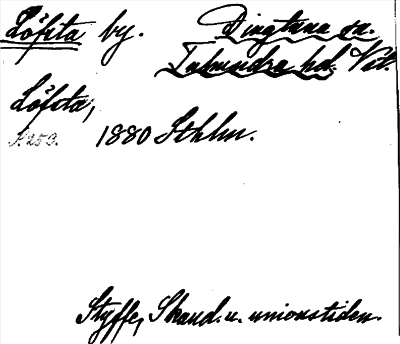 Löfsta by. Dingtuna sn.
Tuhundra hd. Vstl.
Löfsta,
s. 253. 1880 Sthlm.
Styffe, Skand. u. unionstiden.